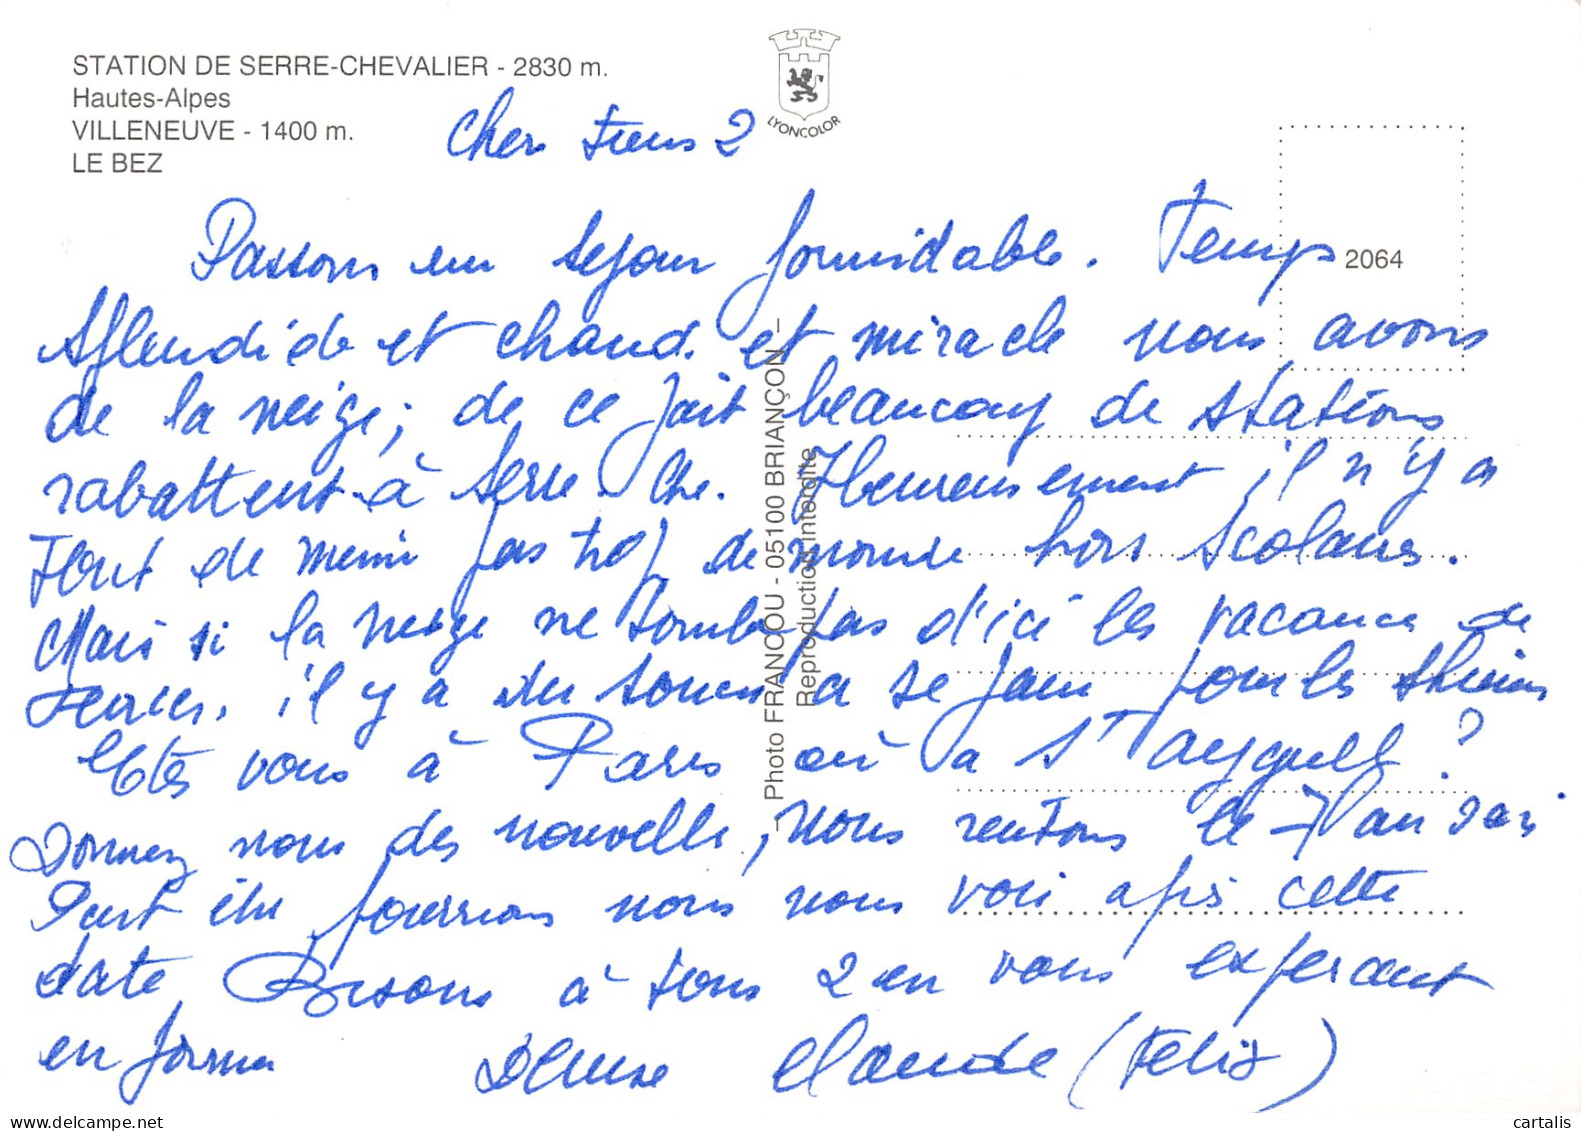 STATION DE SERRE-CHEVALIER - 2830 m.
Hautes-Alpes
VILLENEUVE - 1400 m.
LE BEZ
LYONCOLOR
2064
Photo FRANCOU - 05100 BRIANÇON
Reproduction Interdite
Cher tous 2
Passons un séjour formidable. Temps
splendide et chaud. et miracle nous avons
de la neige; de ce fait beaucoup de stations
rabattent à Serre. Che. Heureusement il n'y a
tout de même pas trop de monde hors scolaires.
Mais si la neige ne tombe pas d'ici les vacances de
février, il y a du souci a se faire pour les skieurs
Etes vous à Paris ou a St Aygulf ?
Donnez nous des nouvelles, nous rentrons le 7 au soir
Peut être pourrions nous nous voir après cette
date Bisous à tous 2 en vous espérant
en forme Denise Claude (Felix)
cartalis